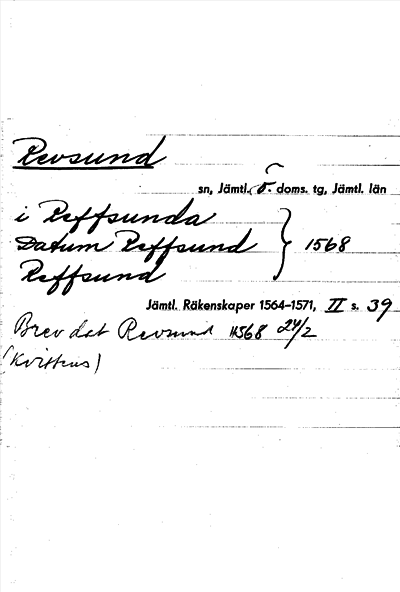 Revsund
sn, Jämtl. ö. doms. tg, Jämtl. län
i Reffsunda
Datum Reffsund } 1568
Reffsund
Jämtl. Räkenskaper 1564–1571, II s. 39
Brev dat Revsund 1568 24/2
(Kvittens)